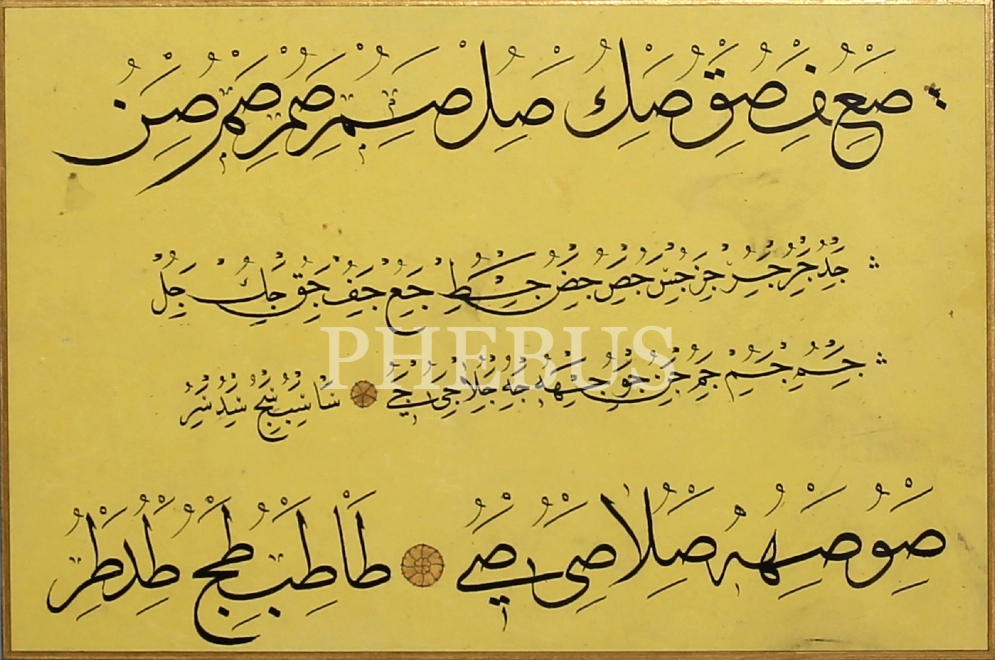 صع صف صق صك صل صم صم صم صن
جد جر جر جس جص جط جع جف جق جك جل
PHEBUS
جم جم جم جن جو جه جه جلا جى جے سا سب سج سد سر
صو صه صه صلا صى صے طا طب طج طد طر